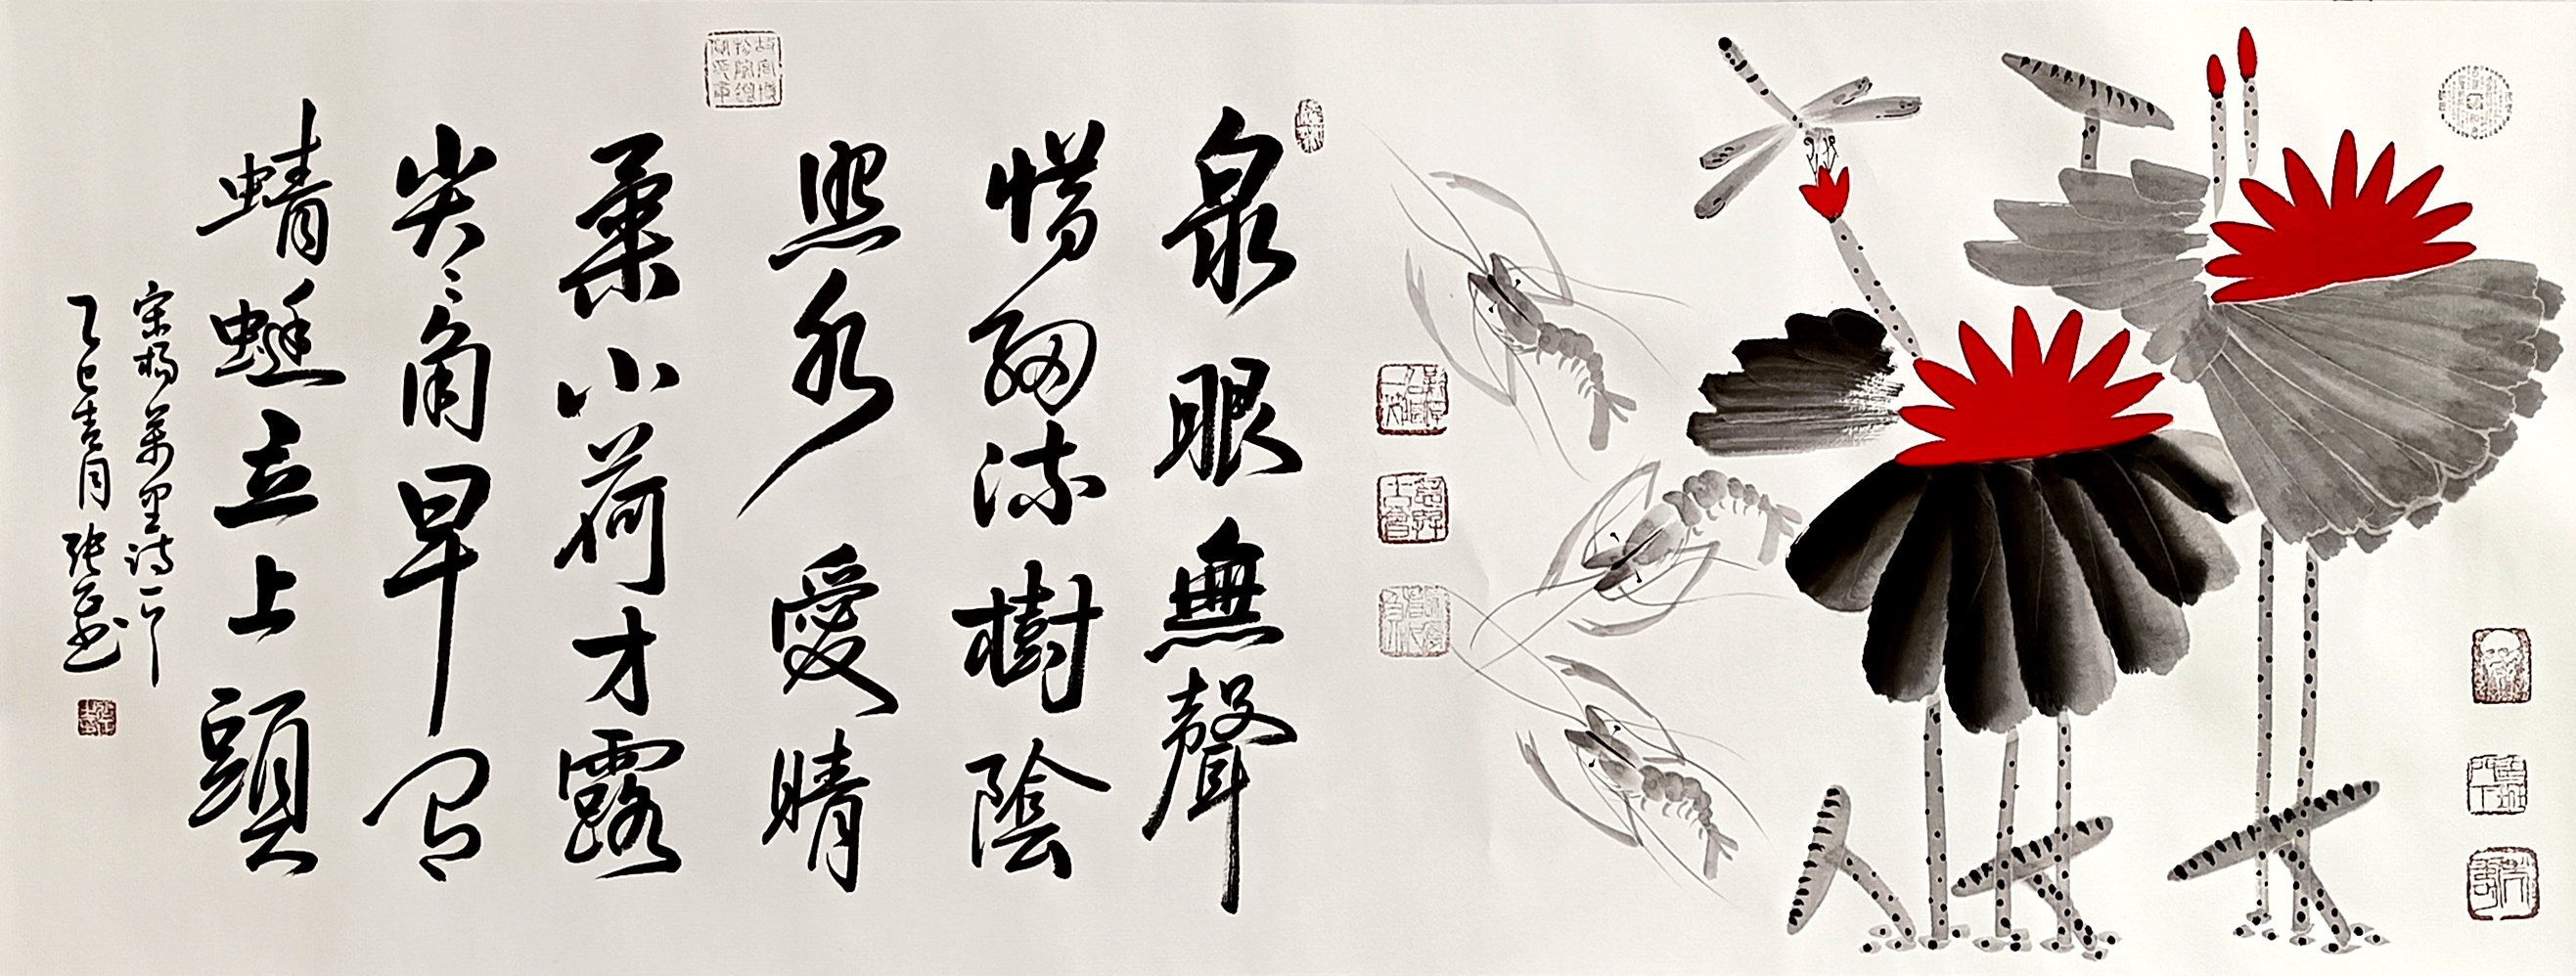 泉眼無聲
惜細流樹陰
照水愛晴
柔小荷才露
尖〻角早有
蜻蜓立上頭
宋楊萬里詩一首
乙巳吉月張